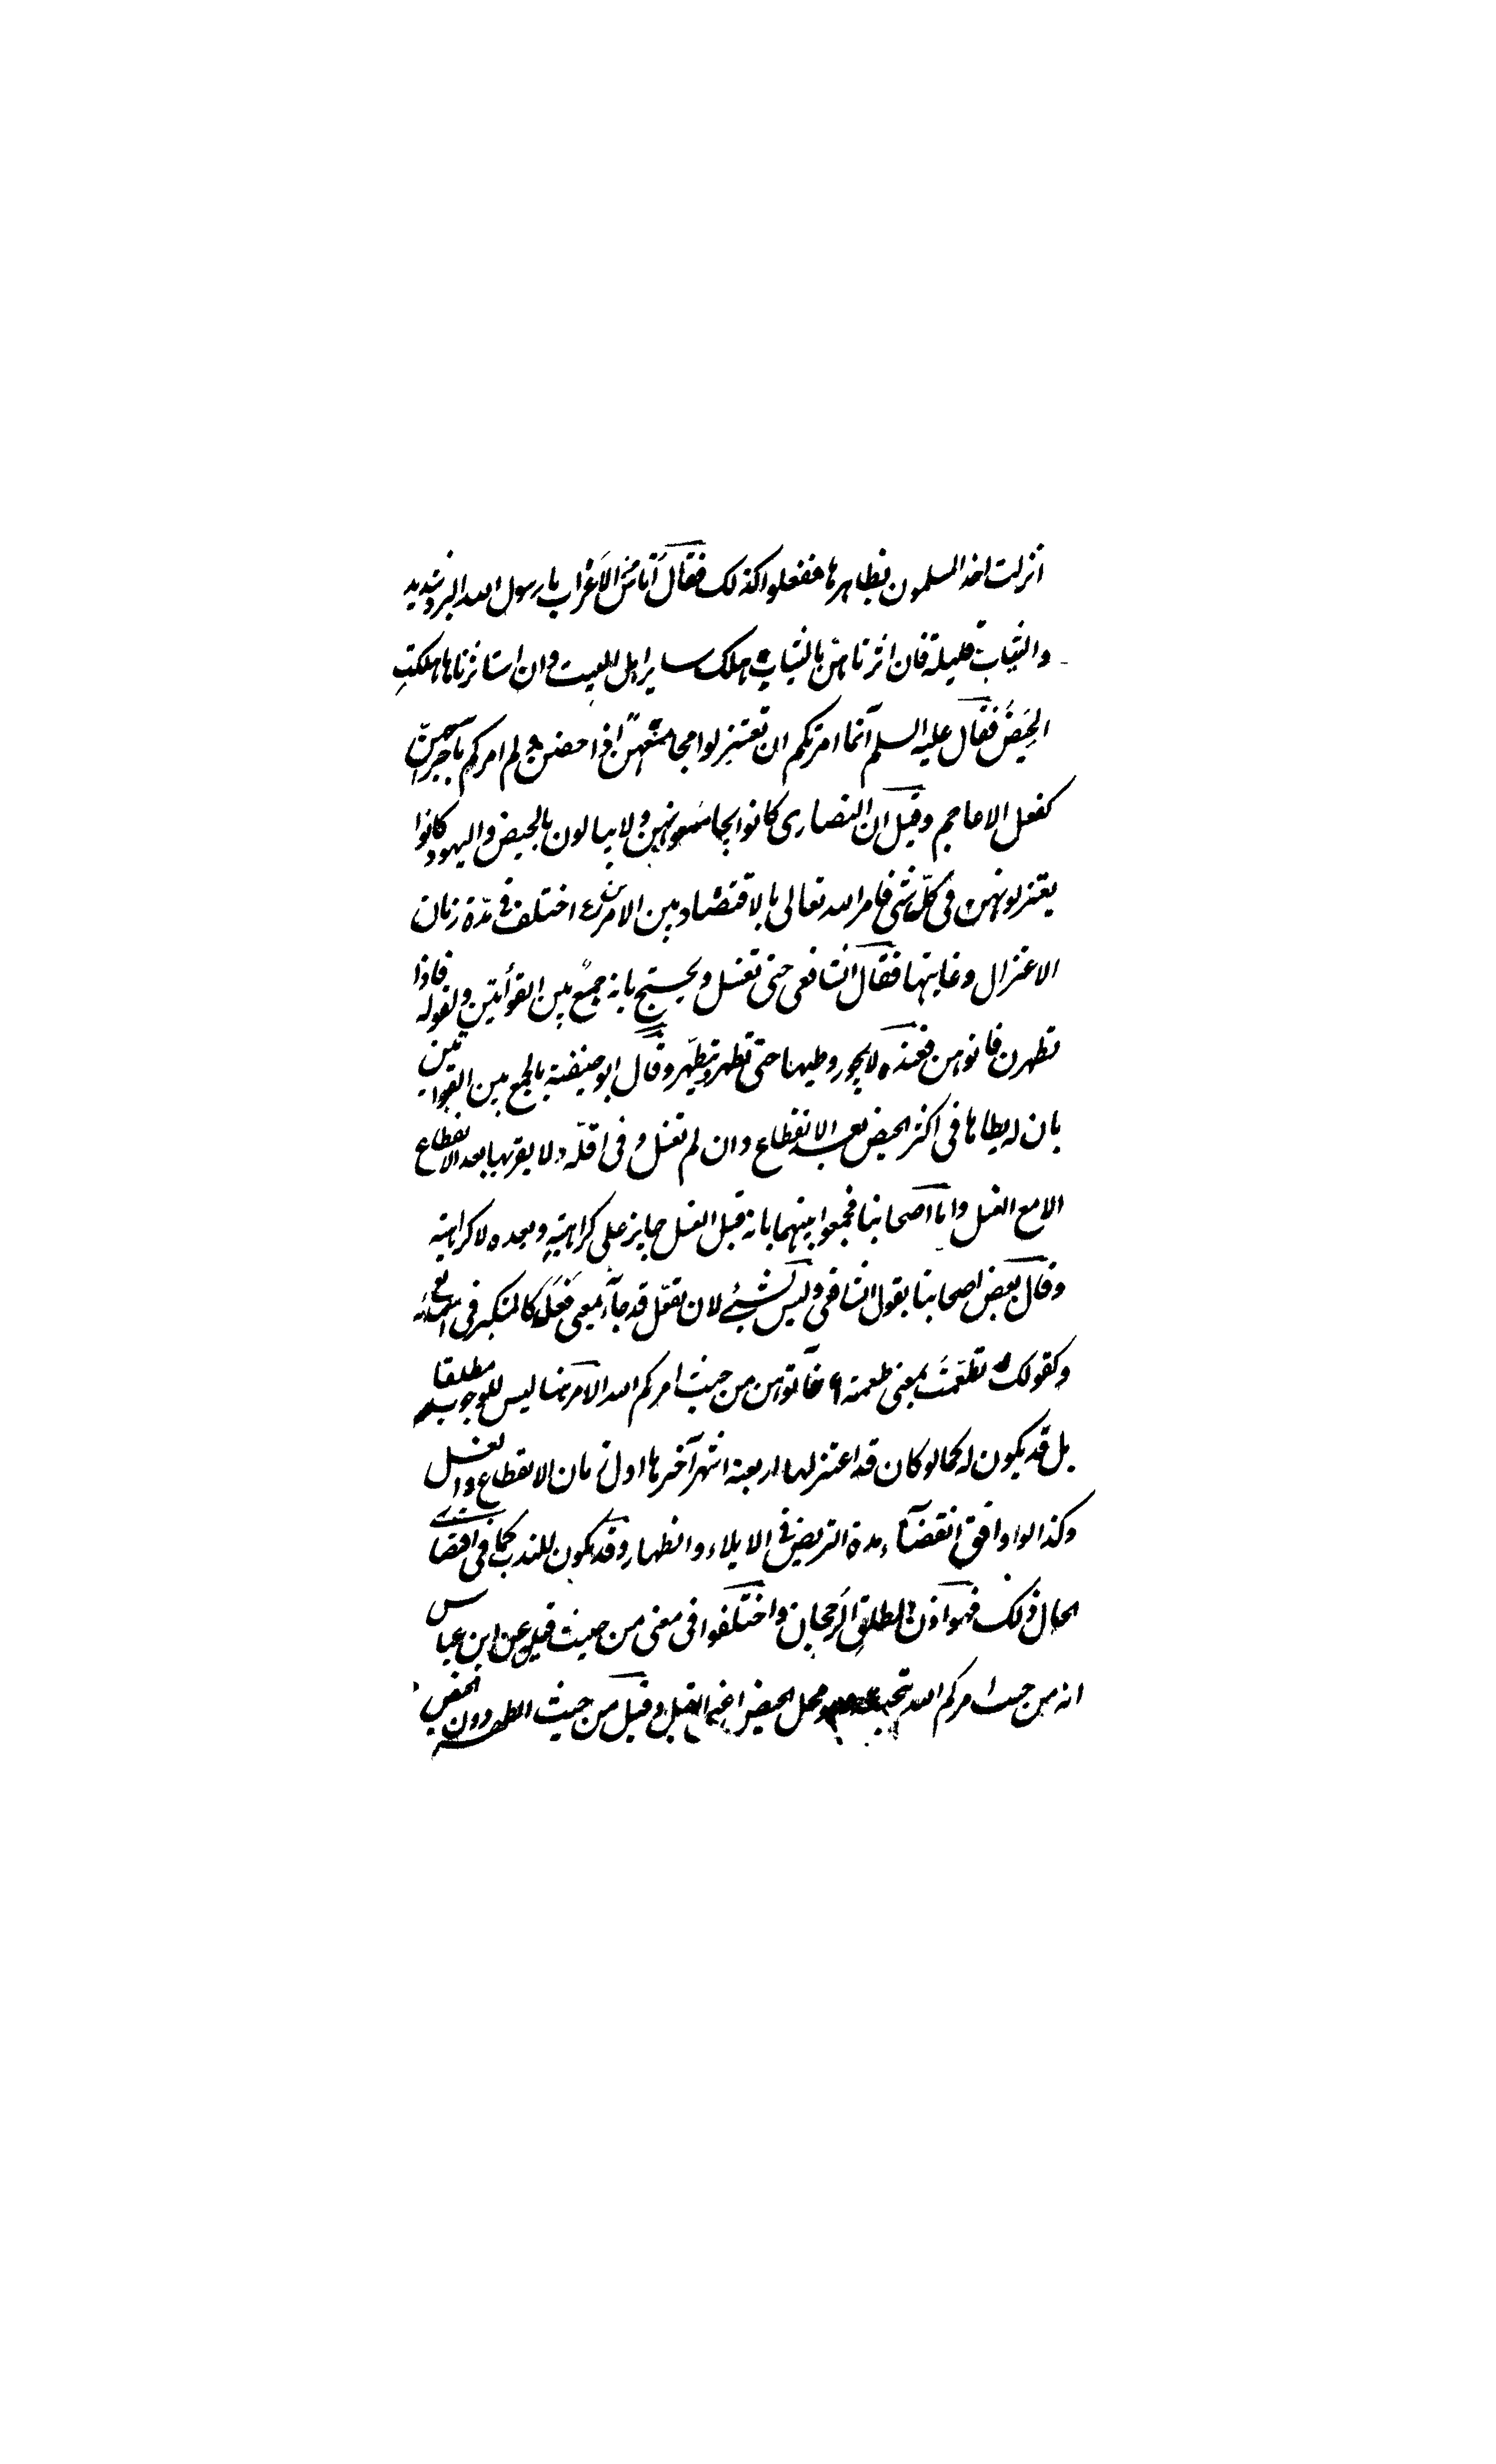 انزلت اخذ المسلمون بظاهرها ففعلوا كذلك فقال أناس من الأعراب يا رسول الله البرد شديد
والثياب قليلة فان اثرناهن بالثياب هلك ساير اهل البيت وان استاثرنا بها هلكت
الحيض فقال عليه السلم انما امرتكم ان تعتزلوا مجامعتهن اذا حضن ولم امركم باخراجهن
كفعل الاعاجم وقيل ان النصارى كانوا يجامعونهن ولا يبالون بالحيض واليهود كانوا
يعتزلونهن في كل شئ فامر الله تعالى بالاقتصاد بين الامرين اختلف في مدة زمان
الاعتزال وغايتها فقال الشافعى حتى تغتسل ويحتج بانه جمع بين القرأتين ولقوله فاذا
تطهرن فاتوهن فعنده لا يجوز وطيها حتى تطهر وتطهر وقال ابو حنيفة بالجمع بين القراتين
بان له يطاها في اكثر الحيض بعد الانقطاع وان لم تغتسل وفى اقله ولا يقربها بعد الانقطاع
الا مع الغسل واما اصحابنا فجمعوا بينهما بانه قبل الغسل جايز على كراهية وبعده لا كراهية
وقال بعض اصحابنا بقول الشافعى وليس بشئ لان تفعل قد جآء بمعنى فعل كالمتكبر في اسمائه تع
وكقولك تطعمت بمعنى طعمته فآتوهن من حيث امركم الله الامر هنا ليس للوجوب مطلقا
بل قد يكون له كما لو كان قد اعتزلها اربعة اشهر آخرها اول زمان الانقطاع والغسل
وكذا لو وافق انقضآء مدة التربص في الايلاء والظهار وقد يكون للندب كما في اقتضاء
الحال ذلك فهو اذن لمطلق الرجحان واختلفوا في معنى من حيث فقيل عن ابن عباس
انه من حيث امركم الله تجنبه وهو محل الحيض اعنى القبل وقيل من حيث الطهر دون الحيض